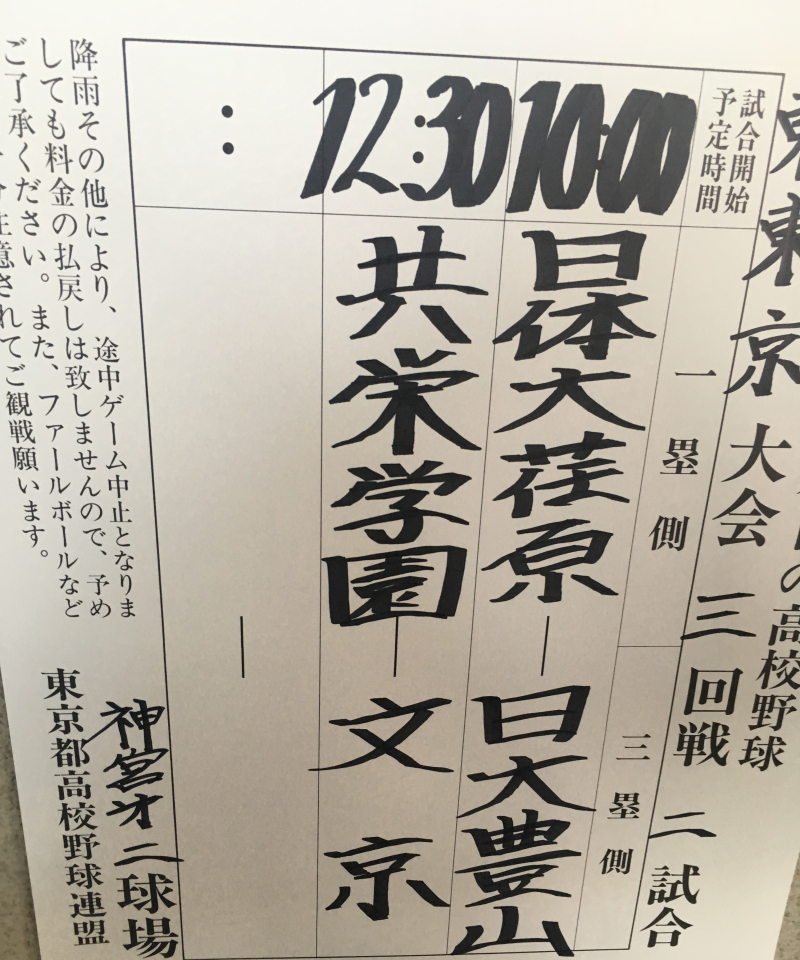 の高校野球
東東京大会 三回戦 二試合
試合開始
予定時間
一塁側
三塁側
10:00 日体大荏原 — 日大豊山
12:30 共栄学園 — 文京
: —
降雨その他により、途中ゲーム中止となりま
しても料金の払戻しは致しませんので、予め
ご了承ください。また、ファールボールなど
注意されてご観戦願います。
神宮才二球場
東京都高校野球連盟